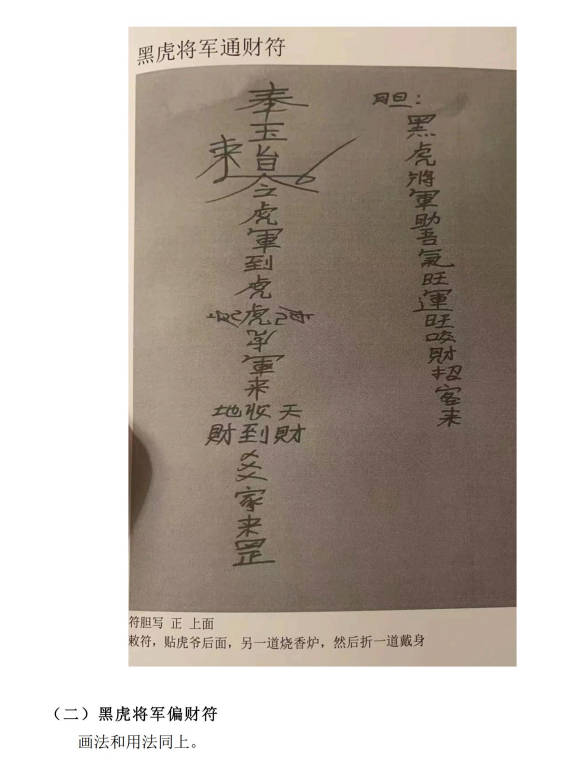 黑虎将军通财符
奉
玉旨
来
之
虎
軍
到
虎
虎
軍
来
地收天
財到財
㸚
家
来
罡
胆：
黑虎將軍助吾氣旺運旺咬財招客来
符胆写 正 上面
敕符，贴虎爷后面，另一道烧香炉，然后折一道戴身
（二）黑虎将军偏财符
画法和用法同上。